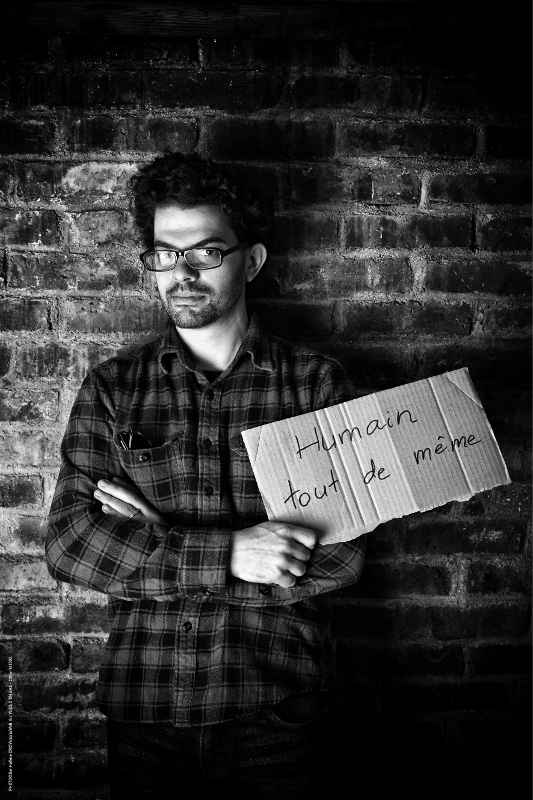 Humain
tout de même